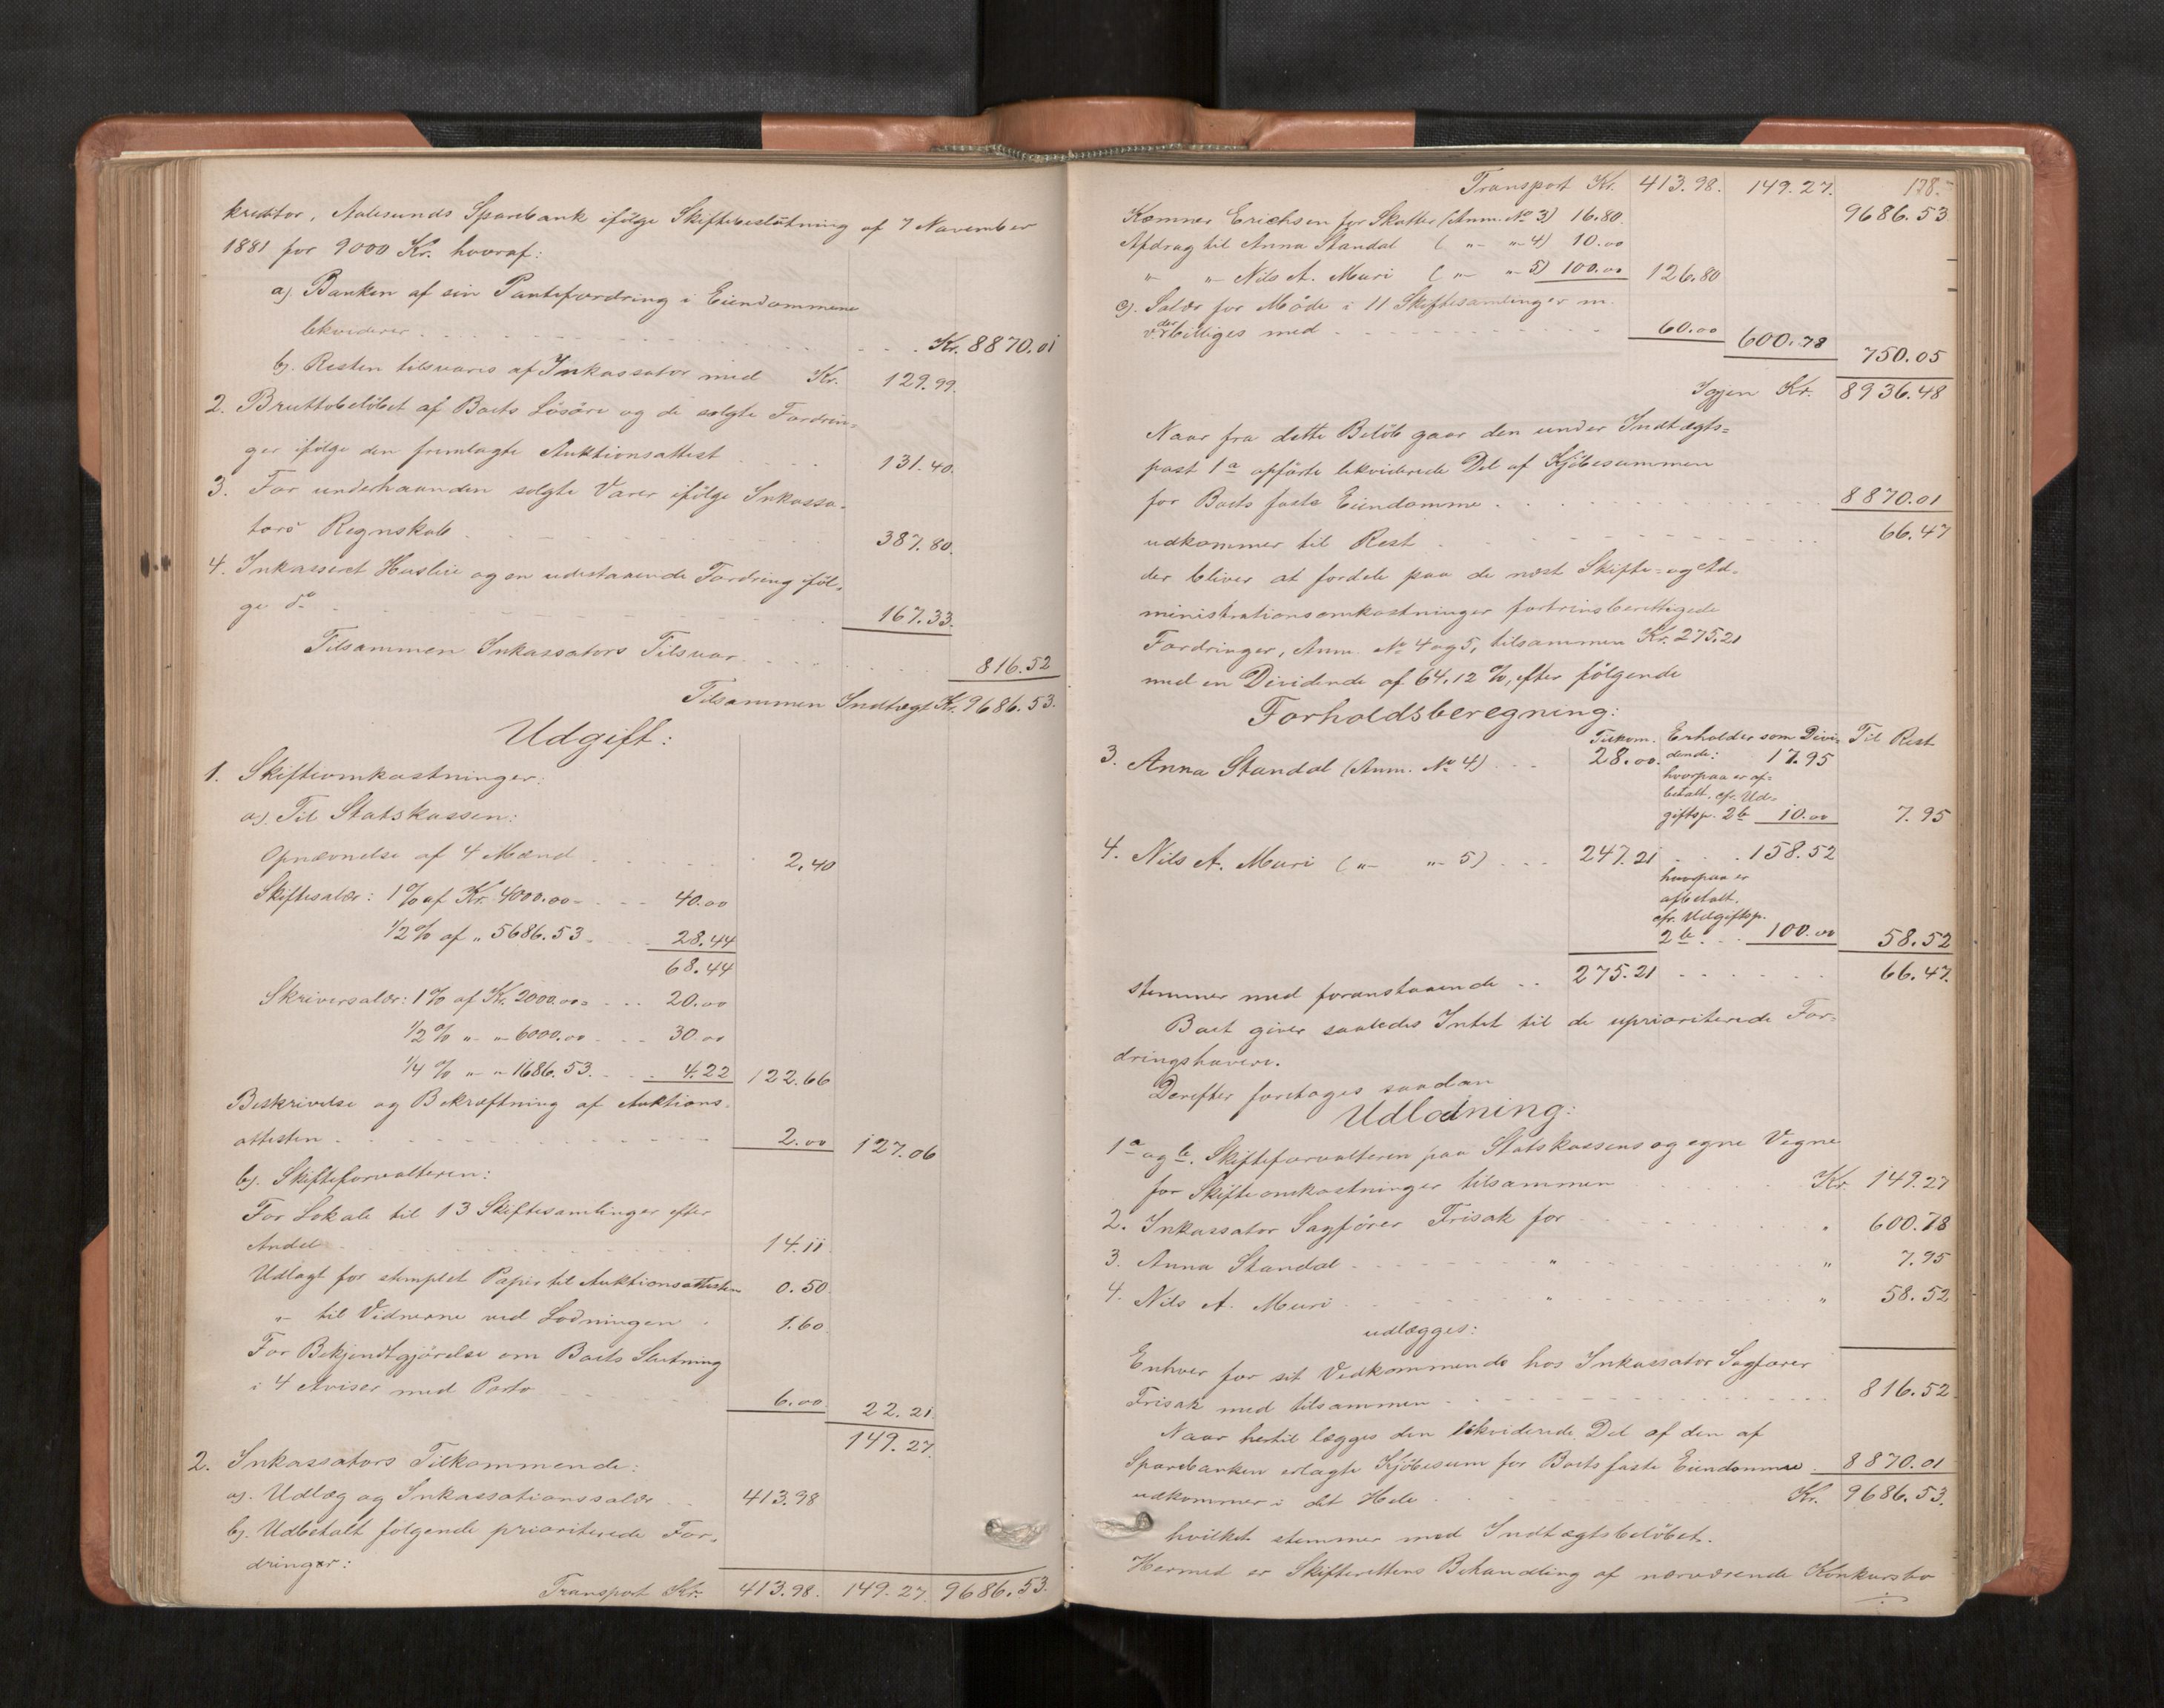 kreditor, Aalesunds Sparebank ifölge Skiftebeslutning af 7 November
1881 for 9000 Kr. hvoraf:
a). Banken af sin Pantefordring i Eiendommene
likviderer . . . Kr. 8870.01
b). Resten tilsvares af Inkassator med Kr. 129.99.
2. Bruttobelöbet af Boets Lösöre og de solgte Fordrin=
ger ifölge den fremlagte Auktionsattest 131.40.
3. For underhaanden solgte Varer ifölge Inkassa-
tors Regnskab 387.80.
4. Inkasseret Husleie og en udestaaende Fordring iföl-
ge do 167.33.
Tilsammen Inkassators Tilsvar 816.52
Tilsammen Indtægt Kr. 9686.53.
Udgift:
1. Skifteomkostninger:
a). Til Statskassen:
Opnævnelse af 4 Mænd 2.40
Skiftesalær: 1% af Kr. 4000.00 = 40.00
1/2% af „ 5686.53 28.44
68.44
Skriversalær: 1% af Kr. 2000.00 = 20.00
1/2% „ „ 6000.00 30.00
1/4% „ „ 1686.53. 4.22 122.66
Beskrivelse og Bekræftning af Auktions-
attesten 2.00 127.06
b). Skifteforvalteren:
For Lokale til 13 Skiftesamlinger efter
Andel 14.11
Udlagt for stemplet Papir til Auktionsattesten 0.50
„ til Vidnerne ved Lodningen 1.60
For Bekjendtgjörelse om Boets Slutning
i 4 Aviser med Porto 6.00 22.21.
149.27
2. Inkassators Tilkommende:
a). Udlæg og Inkassationssalær 413.98
b). Udbetalt følgende prioriterede For-
dringer:
Transport Kr. 413.98. 149.27. 9686.53.
178.
Transport Kr. 413.98. 149.27. 9686.53
Kæmner Erichsen for Skatter (Anm. No 3) 16.80.
Afdrag til Anna Standal ( „ „ 4) 10.00
„ „ Nils A. Muri ( „ „ 5) 100.00 126.80
c). Salær for Møde i 11 Skiftesamlinger m.
v. der billiges med 60.00 600.78 750.05
Igjen Kr. 8936.48
Naar fra dette Belöb gaar den under Indtægts=
post 1a opførte likviderede Del af Kjöbesummen
for Boets faste Eiendomme 8870.01
udkommer til Rest 66.47
der bliver at fordele paa de næst Skifte- og Ad-
ministrationsomkostninger fortrinsberettigede
Fordringer, Anm. No 4 og 5, tilsammen Kr. 275.21
med en Dividende af 64.12 %, efter følgende
Forholdsberegning:
Tilkom. Erholder som Divi- Til Rest
3. Anna Standal (Anm. No 4) 28.00. dende: 17.95
hvorpaa er af-
betalt. cfr. Ud-
giftsp. 2b 10.00 7.95
4. Nils A. Muri ( „ „ 5) 247.21 158.52
hvorpaa er
afbetalt.
cfr. Udgiftsp.
2b 100.00 58.52
stemmer med foranstaaende 275.21 66.47.
Boet giver saaledes Intet til de uprioriterede For-
dringshavere.
Derefter foretages saadan
Udlodning:
1a og b. Skifteforvalteren paa Statskassens og egne Vegne
for Skifteomkostninger tilsammen Kr. 149.27
2. Inkassator Sagfører Frisak for „ 600.78
3. Anna Standal „ „ 7.95
4. Nils A. Muri „ „ 58.52
udlægges:
Enhver for sit Vedkommende hos Inkassator Sagfører
Frisak med tilsammen 816.52
Naar hertil lægges den likviderede Del af den af
Sparebanken erlagte Kjöbesum for Boets faste Eiendomme 8870.01
udkommer i det Hele Kr. 9686.53.
hvilket stemmer med Indtægtsbelöbet.
Hermed er Skifterettens Behandling af nærværende Konkursbo